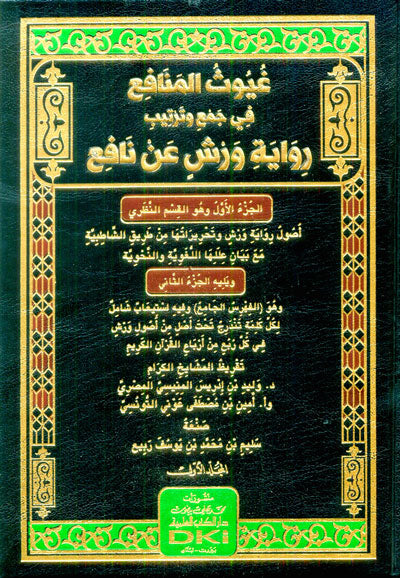 غُيُوثُ المَنَافِعِ
فِي جَمْعِ وَتَرْتِيبِ
رِوَايَةِ وَرْشٍ عَنْ نَافِعٍ
الجُزْءُ الأَوَّلُ وَهُوَ القِسْمُ النَّظَرِي
أُصُولُ رِوَايَةِ وَرْشٍ وَتَحْرِيرَاتُهَا مِنْ طَرِيقِ الشَّاطِبِيَّةِ
مَعَ بَيَانِ عِلَلِهَا اللُّغَوِيَّةِ وَالنَّحْوِيَّةِ
وَيَلِيهِ الجُزْءُ الثَّانِي
وَهُوَ (الفِهْرِسُ الجَامِعُ) وَفِيهِ اسْتِيعَابٌ شَامِلٌ
لِكُلِّ كَلِمَةٍ تَنْدَرِجُ تَحْتَ أَصْلٍ مِنْ أُصُولِ وَرْشٍ
فِي كُلِّ رُبْعٍ مِنْ أَرْبَاعِ القُرْآنِ الكَرِيمِ
تَقْرِيظُ المَشَايِخِ الكِرَامِ
د. وَلِيد بْنِ إِدْرِيسَ المَنِيسِيِّ المِصْرِيِّ
وَأ. أَمِين بْنِ مُصْطَفَى عَوْنِي التُّونُسِيِّ
صَنْعَةُ
سَلِيم بْنِ مُحَمَّدِ بْنِ يُوسُفَ رَبِيع
المجلد الأول
منشورات
محمد علي بيضون
دار الكتب العلمية
DKI
بيروت - لبنان